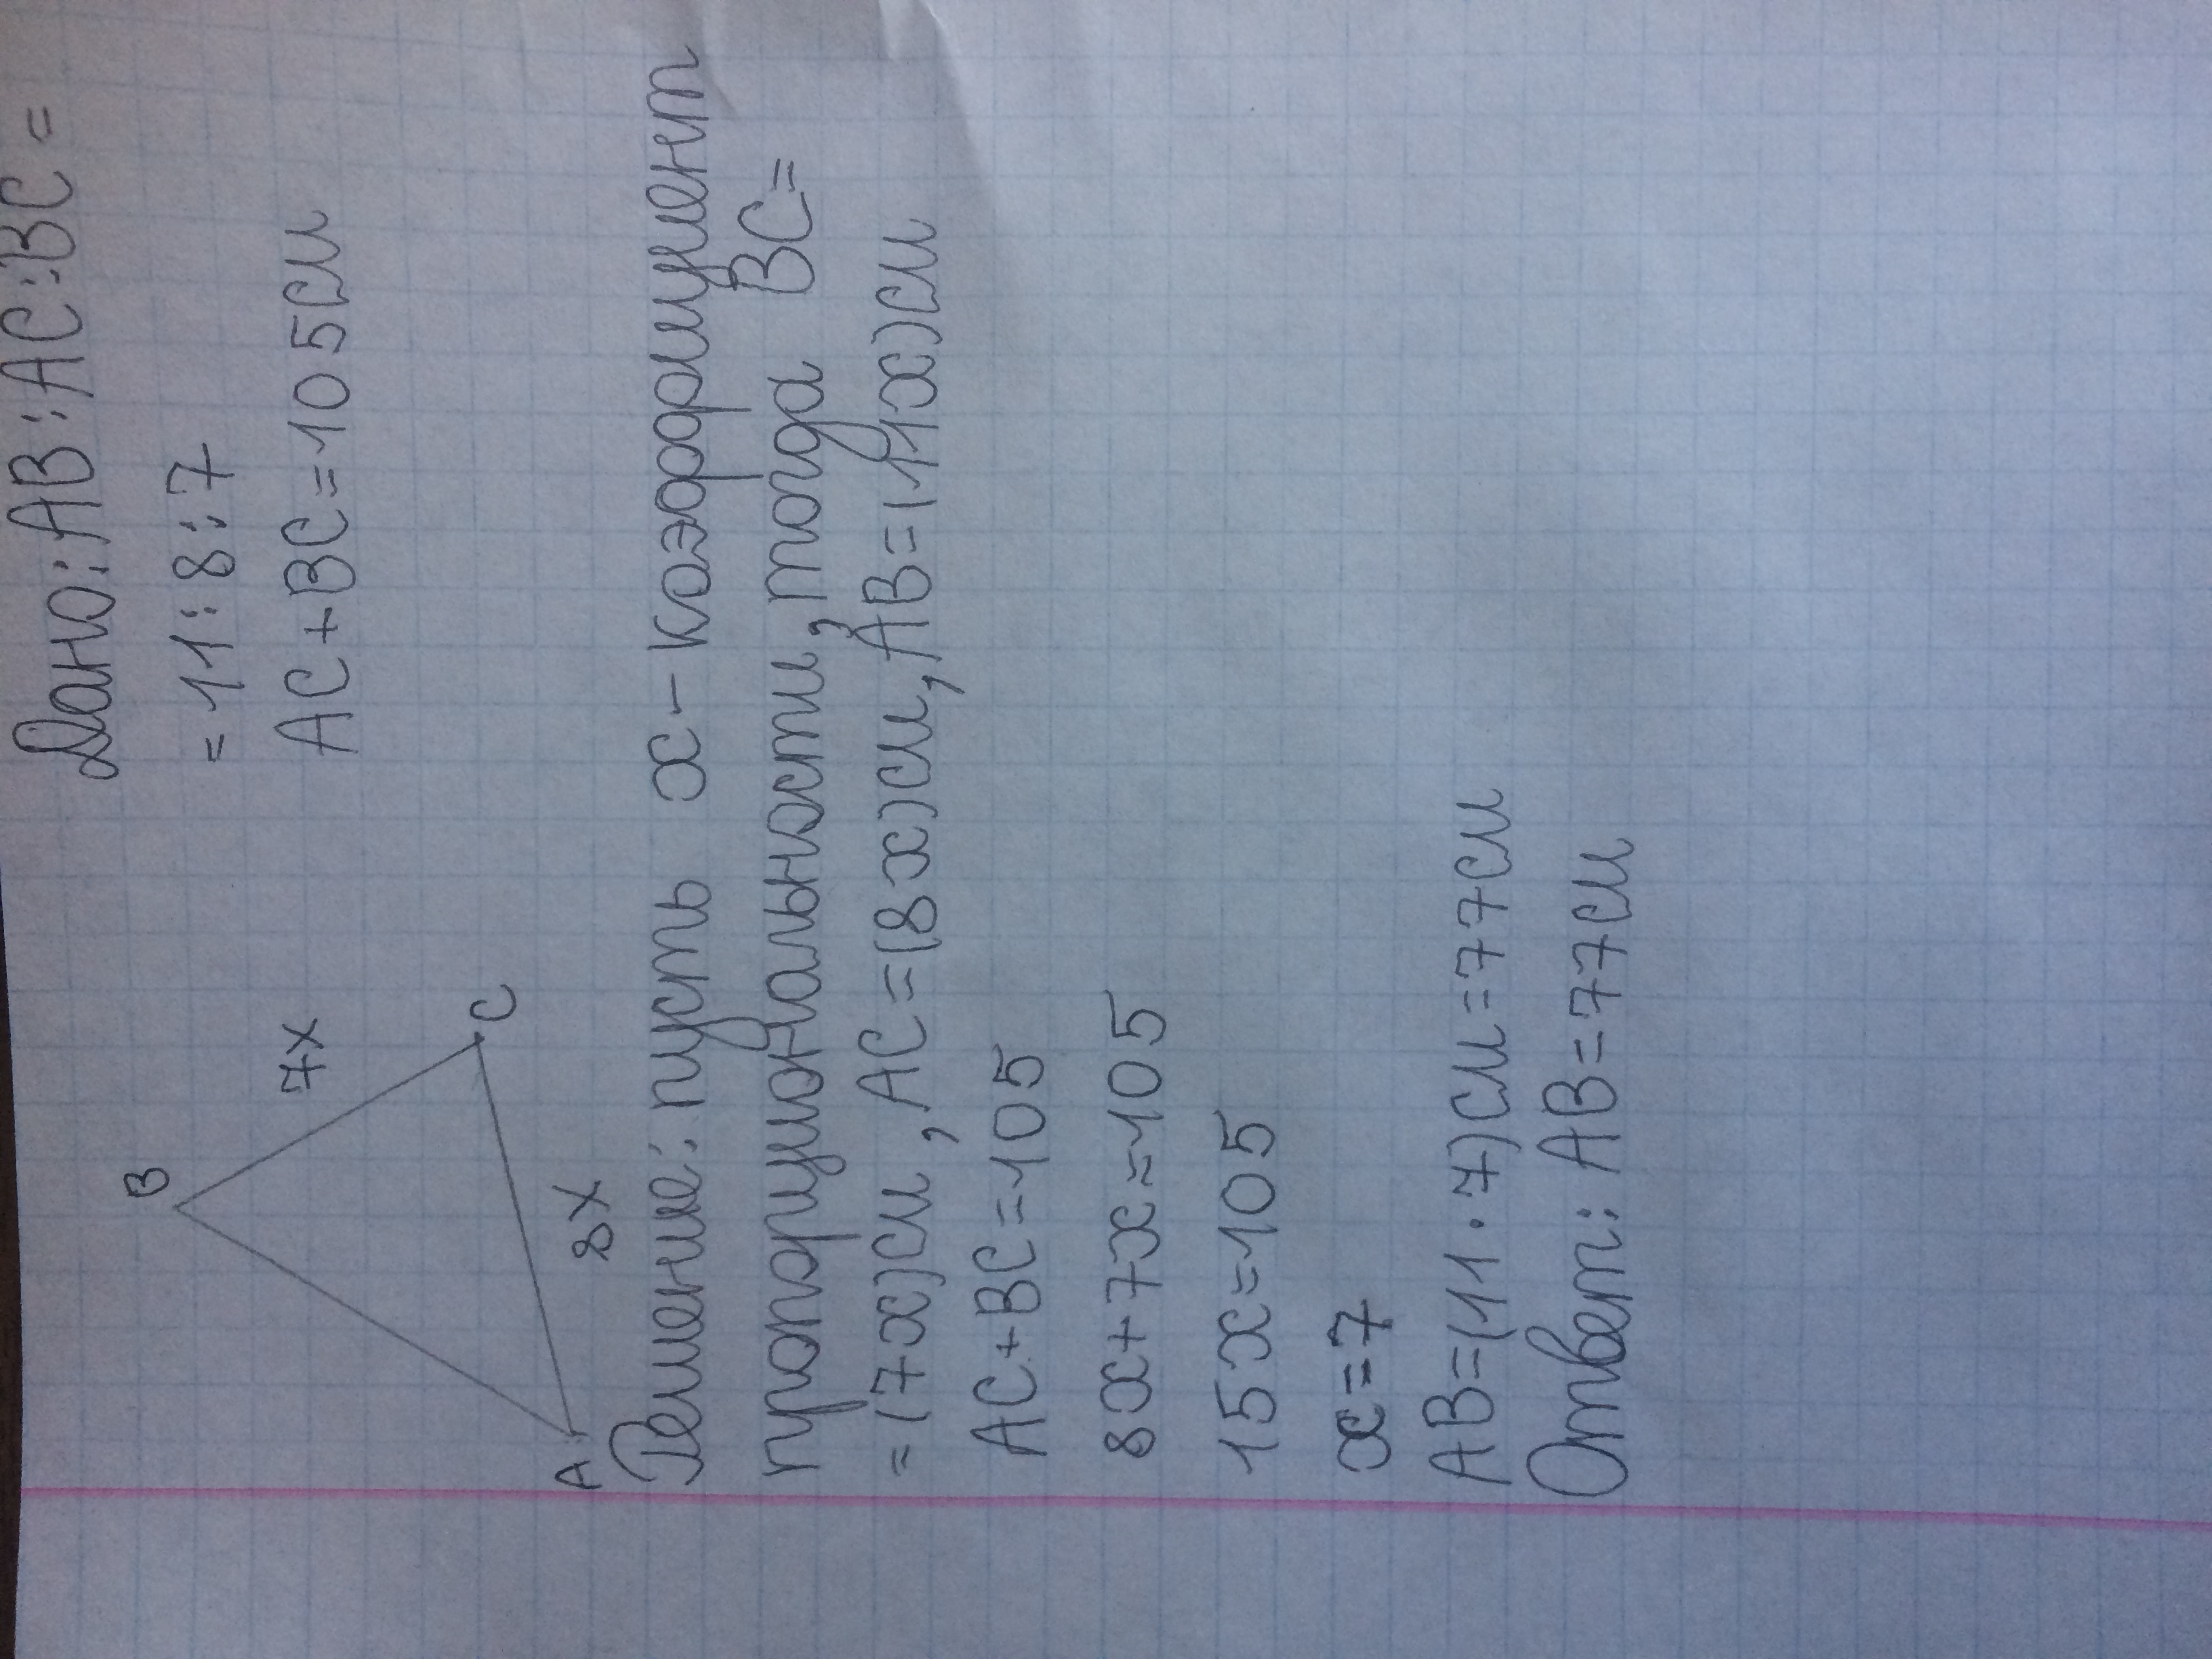 Дано: AB:AC:BC =
= 11:8:7
AC+BC=105см
B
7x
C
A
8x
Решение: пусть x-коэффициент
пропорциональности, тогда BC=
=(7x)см, AC=(8x)см, AB=(11x)см
AC+BC=105
8x+7x=105
15x=105
x=7
AB=(11·7)см=77см
Ответ: AB=77см